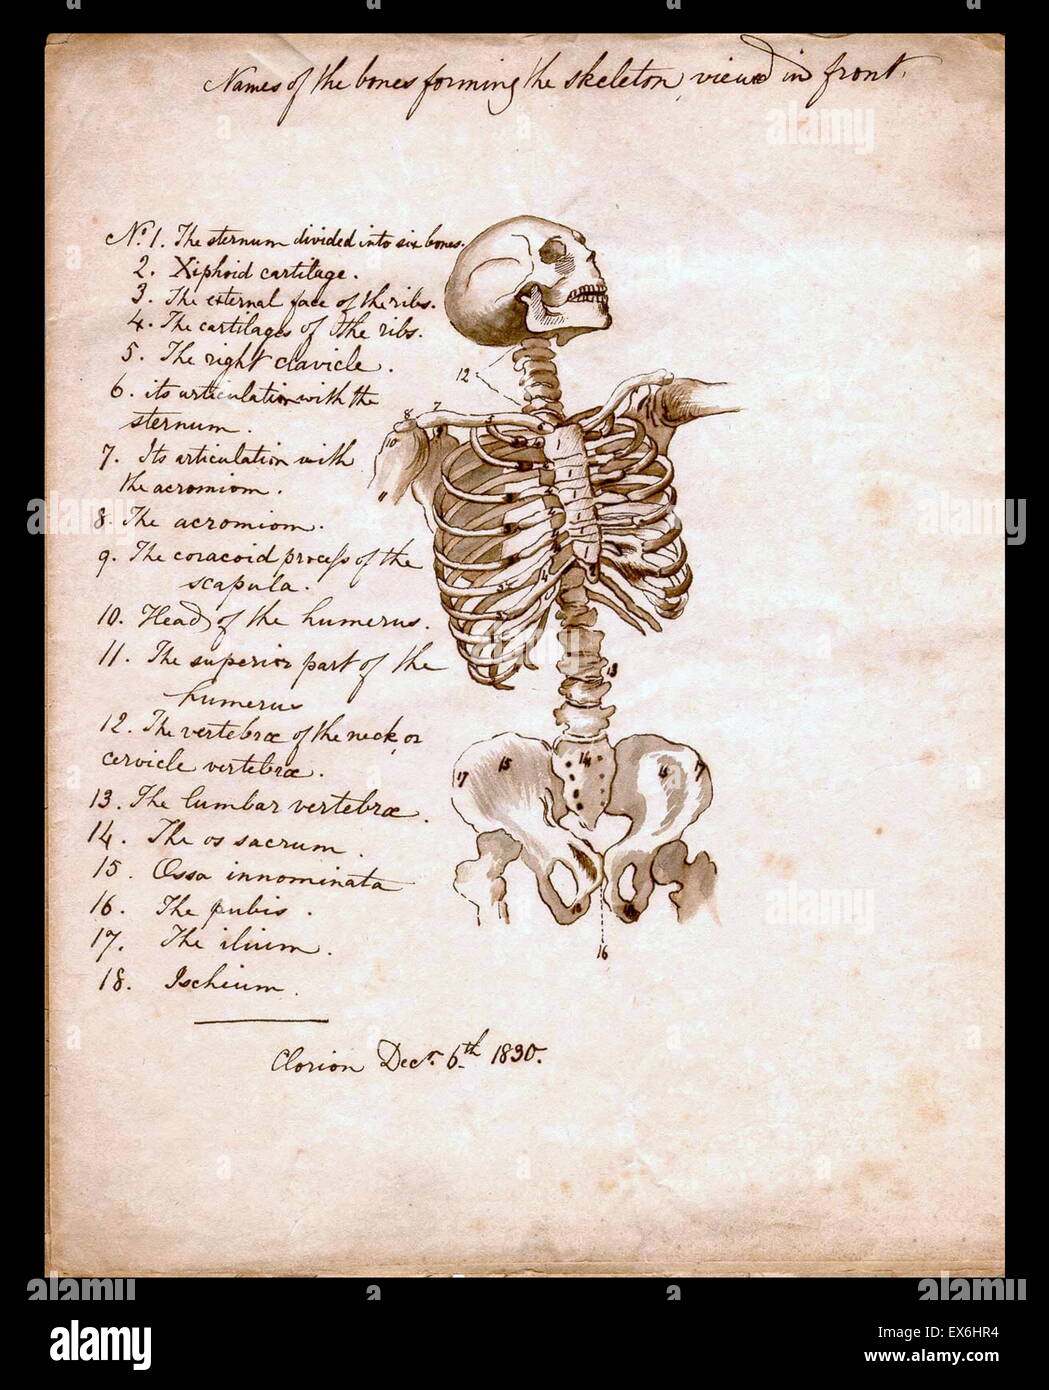 Names of the bones forming the skeleton, viewed in front.
No. 1. The sternum divided into six bones.
2. Xiphoid cartilage.
3. The external face of the ribs.
4. The cartilages of the ribs.
5. The right clavicle.
6. its articulation with the
sternum.
7. Its articulation with
the acromiom.
8. The acromiom.
9. The coracoid process of the
scapula.
10. Head of the humerus.
11. The superior part of the
humerus
12. The vertebræ of the neck or
cervicle vertebræ.
13. The lumbar vertebræ.
14. The os sacrum.
15. Ossa innominata
16. The pubis.
17. The ilium.
18. Ischium.
Clorion Decr. 6th 1830.
12
8 7
10
9
11
1
13
17 15 14 15 17
18 18
16
alamy
Image ID: EX6HR4
www.alamy.com